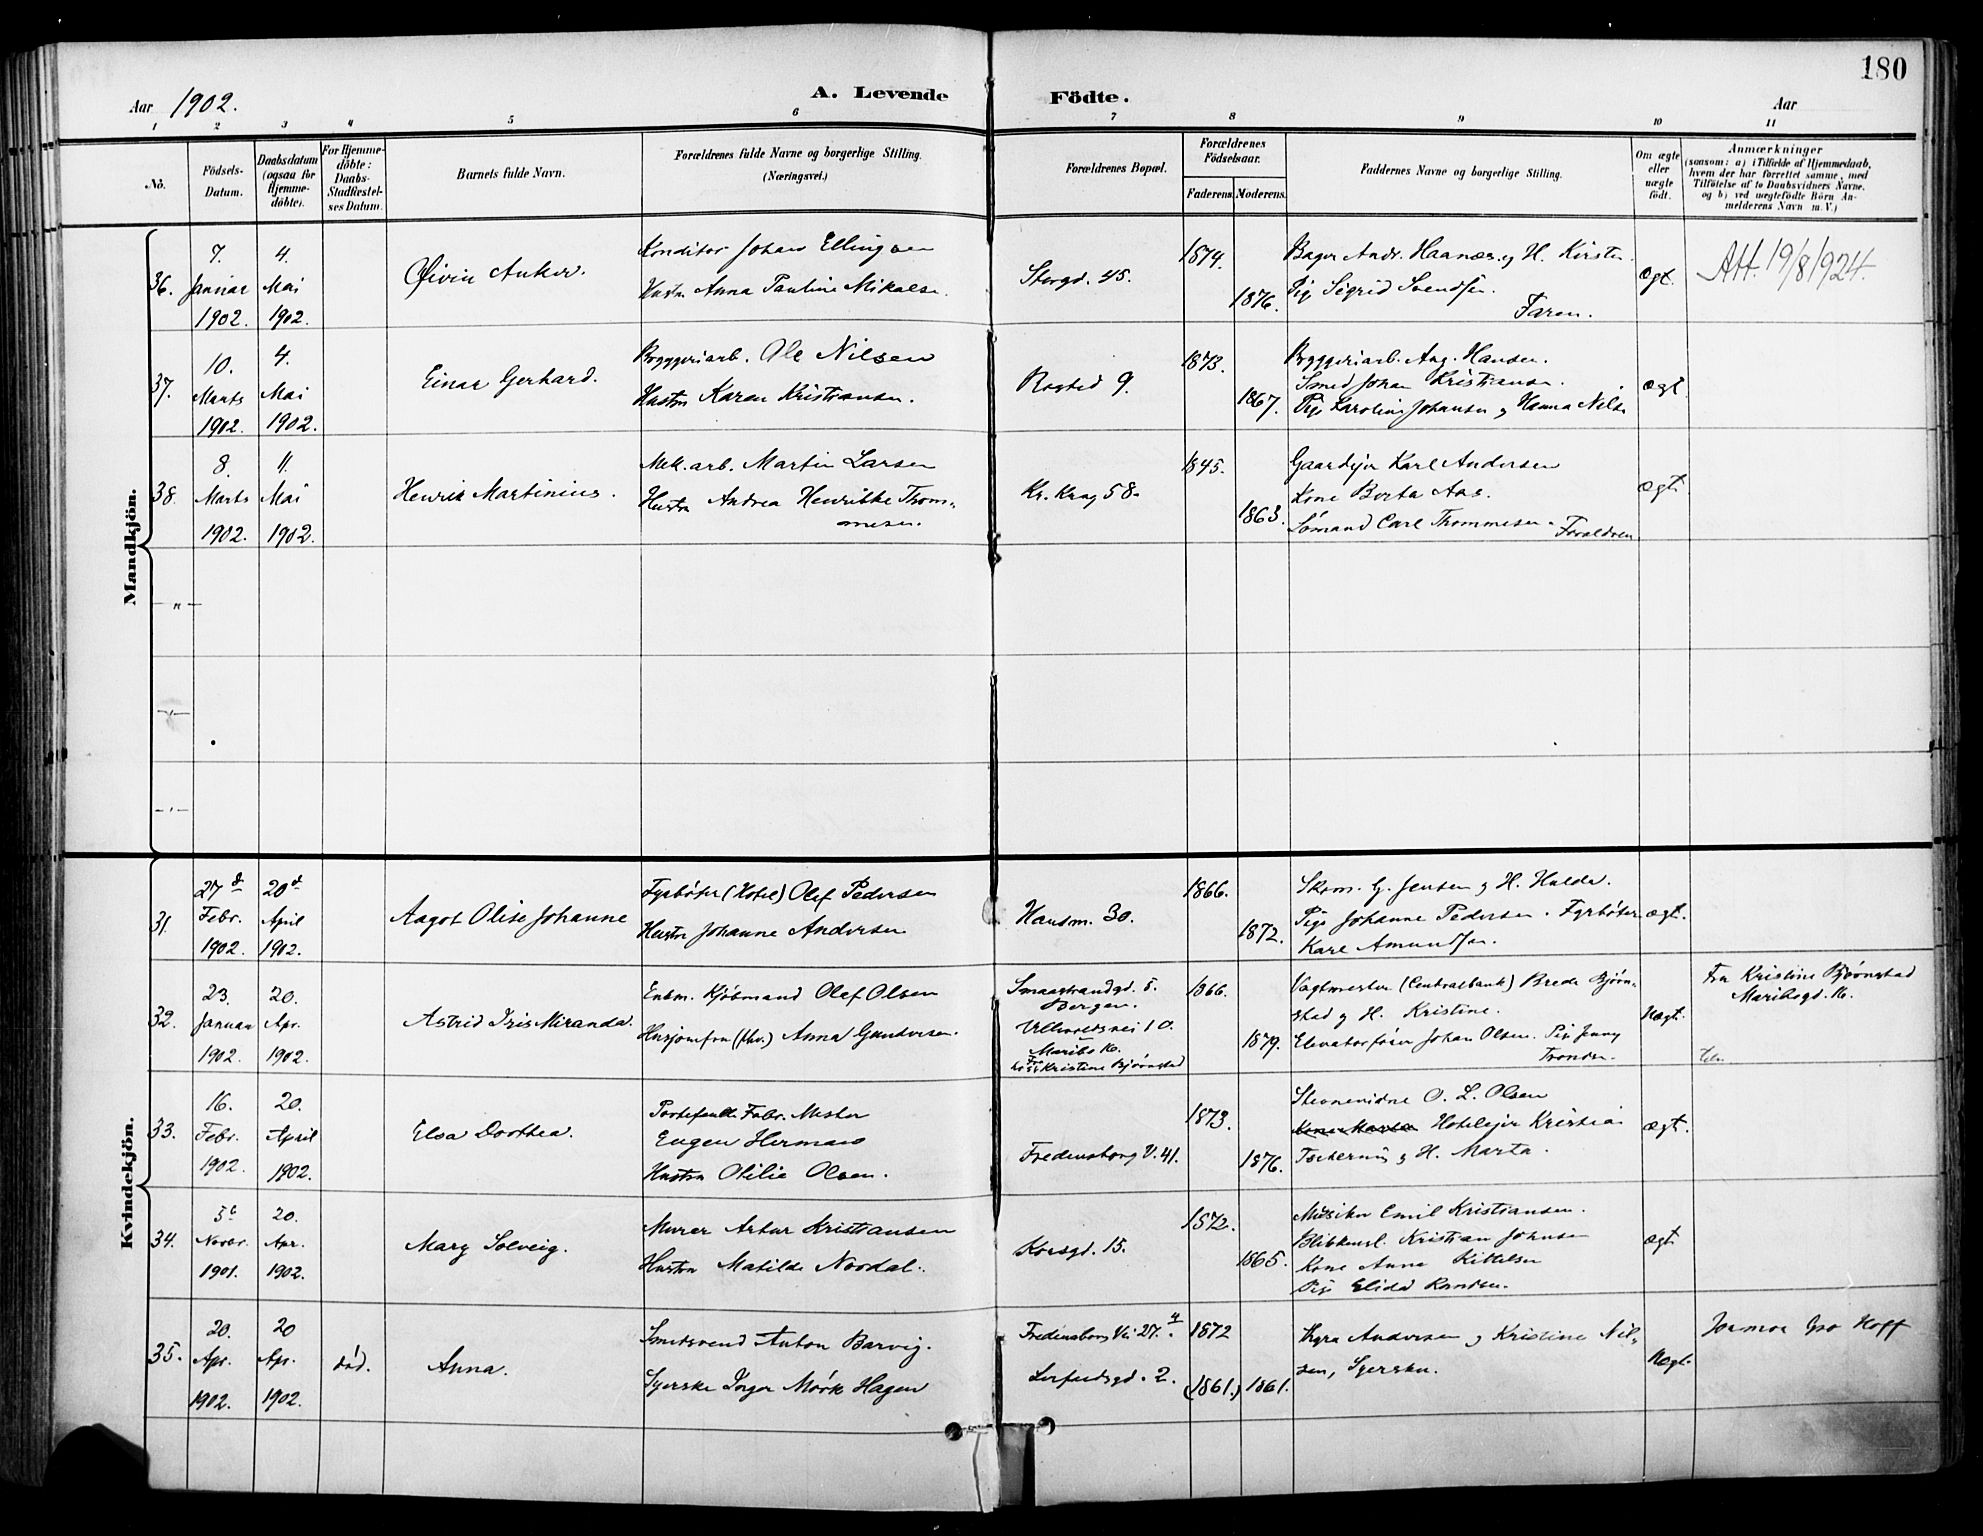 180
Aar 1902.
A. Levende Födte.
Aar
1 2 3 4 5 6 7 8 9 10 11
No.
Födsels-
Datum.
Daabsdatum
(ogsaa for
Hjemme-
döbte).
For Hjemme-
döbte:
Daabs-
Stadfæstel-
ses Datum.
Barnets fulde Navn.
Forældrenes fulde Navne og borgerlige Stilling.
(Næringsvei.)
Forældrenes Bopæl.
Forældrenes
Födselsaar.
Faderens.
Moderens.
Faddernes Navne og borgerlige Stilling.
Om ægte
eller
uægte
födt.
Anmærkninger
(saasom: a) i Tilfælde af Hjemmedaab,
hvem der har forrettet samme, med
Tilföielse af to Daabsvidners Navne.
og b) ved uægtefödte Börn An-
melderens Navn m. V.)
Mandkjön.
36.
7.
Januar
1902.
4.
Mai
1902.
Øivin Anker.
Konditor Johan Ellingsen
Hustru Anna Pauline Mikalsen
Storgd. 45.
1874.
1876.
Bager Andr. Haanæs og H. Kirsten
Pige Sigrid Svendsen.
Faren.
Ægt.
Att. 19/8 1924.
37.
10.
Marts
1902.
4.
Mai
1902.
Einar Gerhard.
Bryggeriarb. Ole Nilsen
Hustru Karen Kristiansen.
Rosted 9.
1873.
1867.
Bryggeriarb. Aug. Hansen.
Smed Johan Kristiansen.
Pige Karoline Johansen og Hanna Nils
Ægt
38.
8.
Marts
1902.
11.
Mai
1902.
Henrik Martinius.
Mek. arb. Martin Larsen
Hustru Andrea Henrikke Thom-
mesen.
Kr. Krag 58.
1845.
1863.
Gaardejer Karl Andersen
Kone Berta Aas.
Sømand Carl Thommesen.
Forældrene
Ægt
Kvindekjön.
31.
27d
Febr.
1902.
20d
April
1902.
Aagot Olise Johanne
Fyrbøter (Hotel) Olef Pedersen
Hustru Johanne Andersen
Hausm. 30.
1866.
1872.
Skom. G. Jensen og H. Hulda.
Pige Johanne Pedersen. Fyrbøter
Karl Amundsen.
Ægt.
32.
23.
Januar
1902.
20.
Apr.
1902.
Astrid Iris Miranda.
Enkm. Kjøbmand Olef Olsen
Husjomfru Anna Gundersen.
Smaastrandgd. 5.
Bergen.
Ullevoldsvei 10.
Maribo 16.
Kristine Bjørnstad
1866.
1879.
Vagtmester (Centralbank) Brede Bjørn-
stad og H. Kristine.
Elevatorfører Johan Olsen. Pige Jenny
Tronsen.
Uægt.
Fru Kristine Bjørnstad
Maribogd. 16.
33.
16.
Febr.
1902.
20.
April
1902.
Elsa Dorthea.
Portefeuille Fabr. Mester
Eugen Hermans
Hustru Otilie Olsen.
Fredensborg V. 41.
1873.
1876.
Stevnevidne O. L. Olsen
Hotelejer Kristian
og H. Marta.
Ægt.
34.
5t
Novbr.
1901.
20.
Apr.
1902.
Mary Solveig.
Murer Artur Kristiansen
Hustru Matilde Nordal.
Korsgd. 15.
1872.
1865.
Musiker Emil Kristiansen.
Blikkensl. Kristian Johnsen
Kone Anna Kittelsen
Pige Elida Knudsen.
Ægt
35.
20.
Apr.
1902.
20
Apr.
1902.
død.
Anna.
Smedsvend Anton Barvig.
Syerske Inger Mørk Hagen
Fredensborg Vei 27. 4
2.
1872
(1861.) 1861.
Thyra Andersen og Kristine Nil-
sen, Syersker.
Uægt.
Jormor Gro Hoff